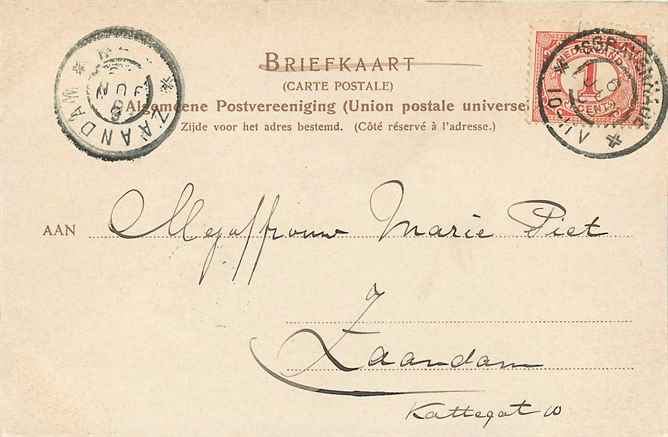 BRIEFKAART
(CARTE POSTALE)
Algemeene Postvereeniging (Union postale universe
Zijde voor het adres bestemd. (Côté réservé à l'adresse.)
ZAANDAM
JUN
NEDERLAND
1
CENT
'SGRAVENHAGE
AAN Mejuffrouw Marie Piet
Zaandam
Kattegat 10